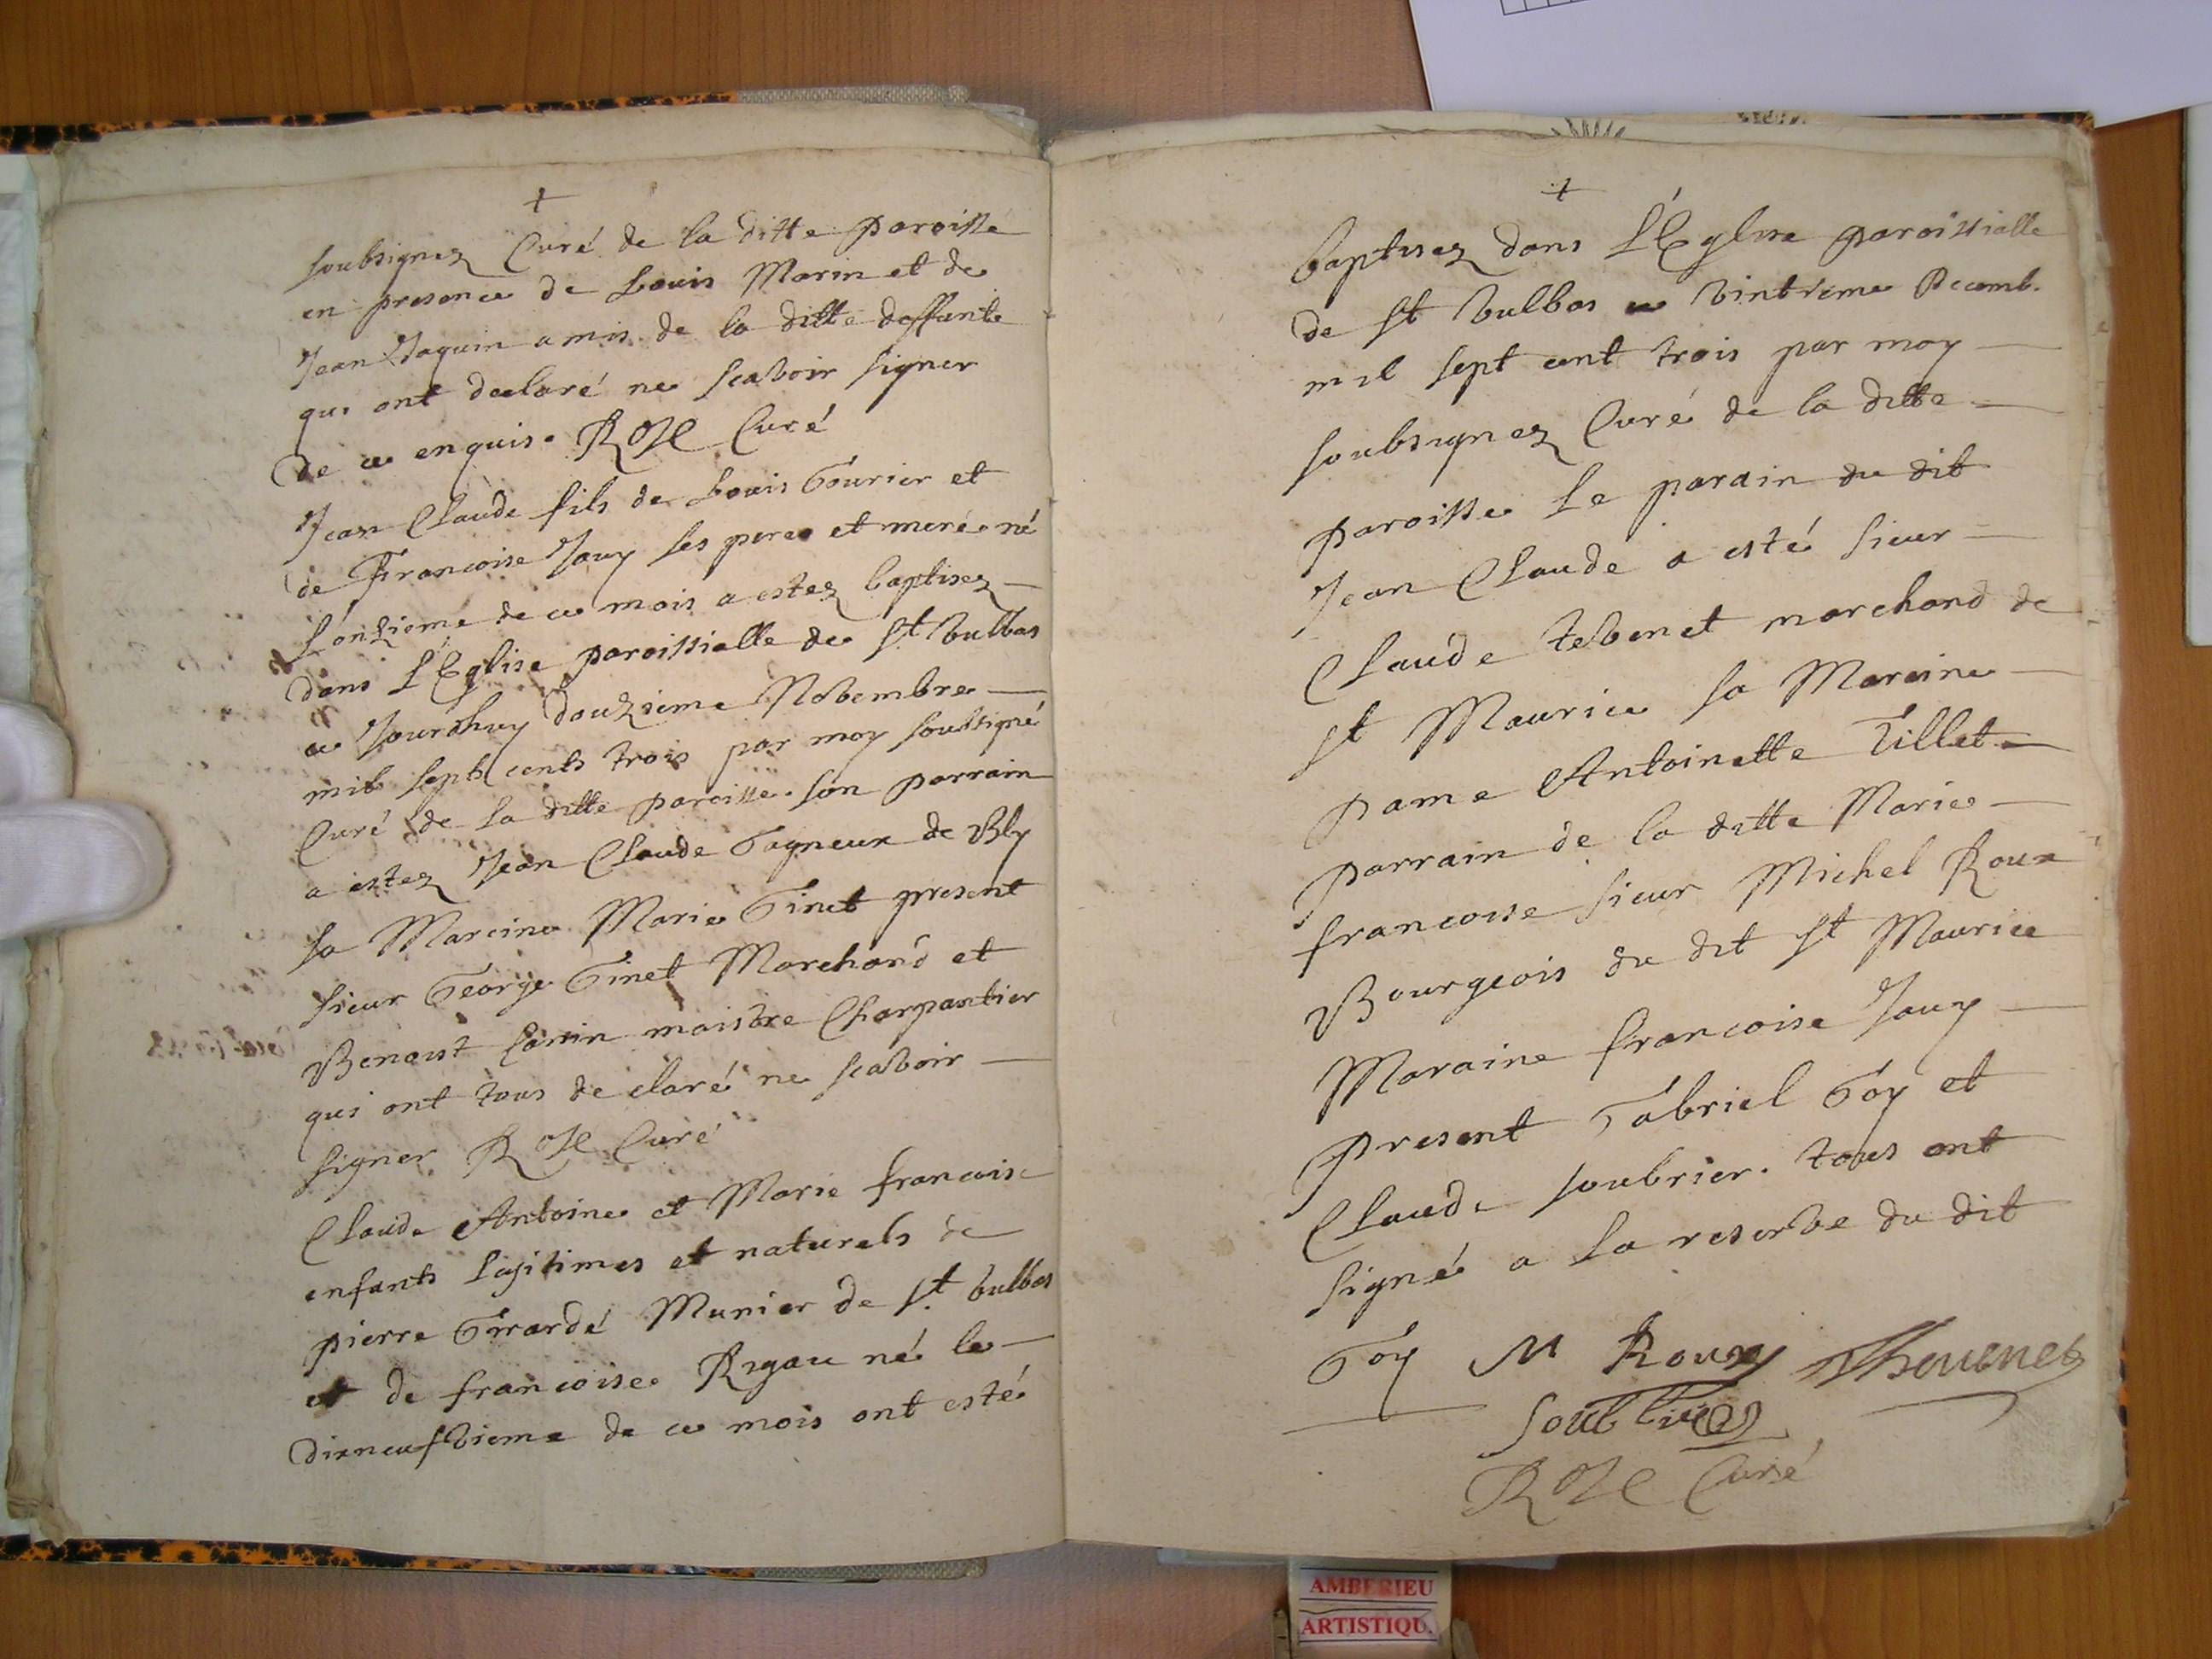 +
soubsignez Curé de la ditte paroisse
en presence de Louis Marin et de
Jean Jaquin amis de la ditte deffunte
qui ont declaré ne scavoir signer
de ce enquis. Roze Curé
Jean Claude fils de Louis Gourier et
de Francoise Jouy ses pere et mere né
l'onzieme de ce mois a estez baptisez
dans L'Eglise paroissialle de St Vulbas
ce Jourdhuy douzieme Novembre
mil septs cents trois par moy soubsigné
Curé de la ditte paroisse. son parrain
a estez Jean Claude Gagneux de Bly
sa Mareine Marie Ginet present
sieur George Ginet Marchand et
Benoist maistre Charpantier
qui ont tous declaré ne scavoir
signer Roze Curé
Claude Antoine et Marie francoise
enfants lajitimes et naturels de
pierre Girardé Munier de St Vulbas
et de francoise Rigau né le
dixneufvieme de ce mois ont esté
+
baptisez dans L'Eglise paroissialle
de St Vulbas ce vintieme Decemb.
mil sept cent trois par moy
soubsignez Curé de la ditte
paroisse Le parain du dit
Jean Claude a esté sieur
Claude tevenet marchand de
St Maurice sa Mareine
Dame Antoinette Tillet
parrain de la ditte Marie
francoise sieur Michel Roux
Bourgeois du dit St Maurice
Maraine francoise Jouy
present Gabriel Goy et
Claude soubrier. tous ont
signé a la reserve du dit
Goy M Roux Thevenet
Roze Curé
AMBERIEU
ARTISTIQU